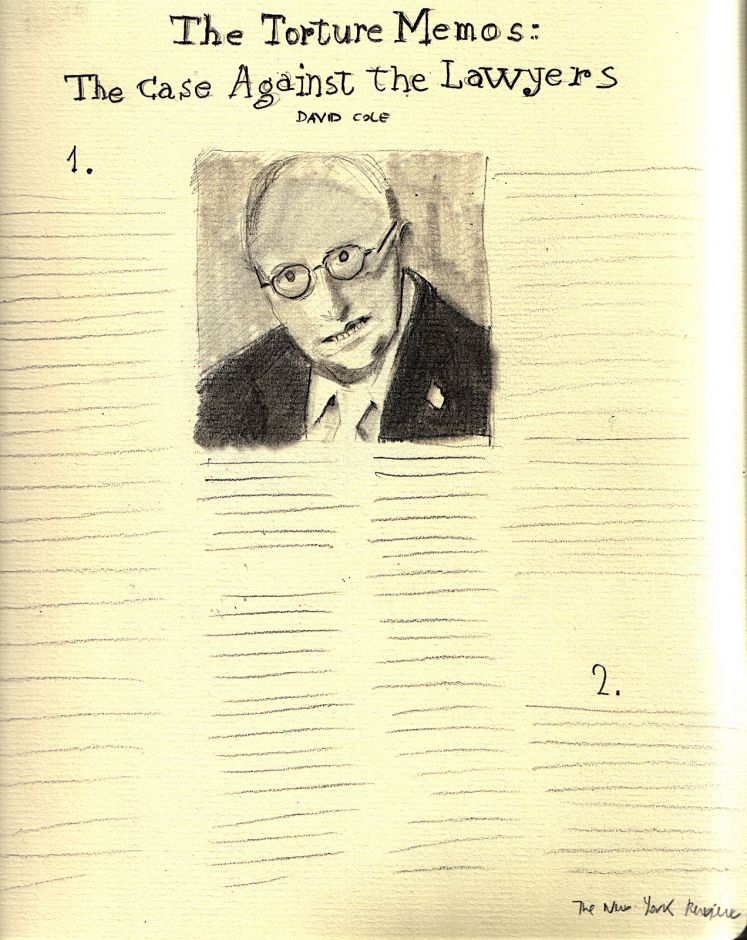 The Torture Memos:
The Case Against the Lawyers
DAVID COLE
1.
2.
The New York Review